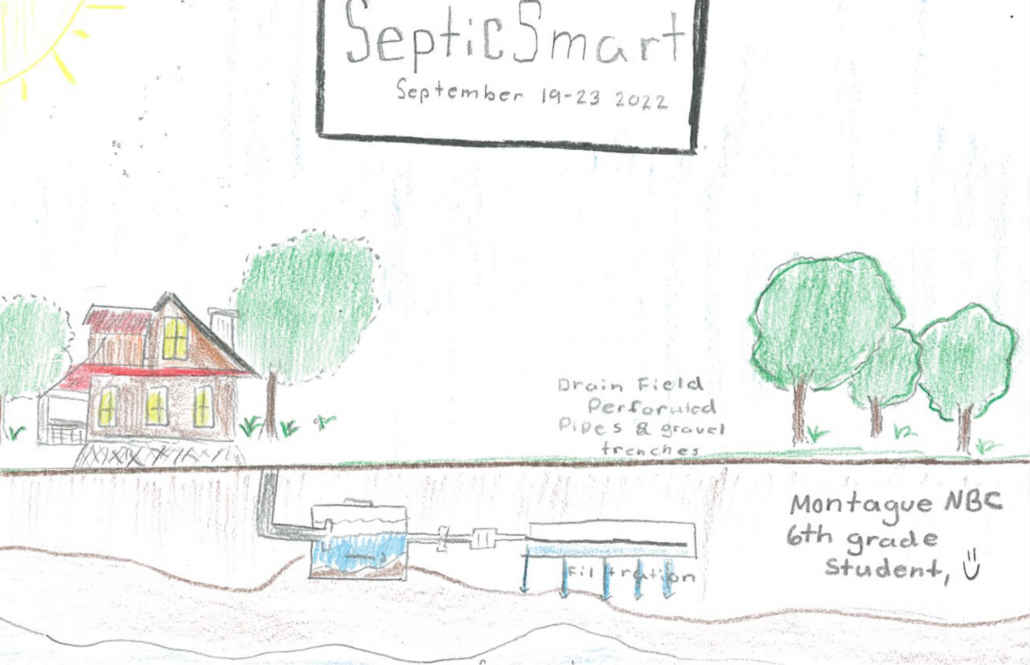 SepticSmart
September 19-23 2022
Drain Field
Perforated
Pipes & gravel
trenches
Montague NBC
6th grade
Student,
Filtration